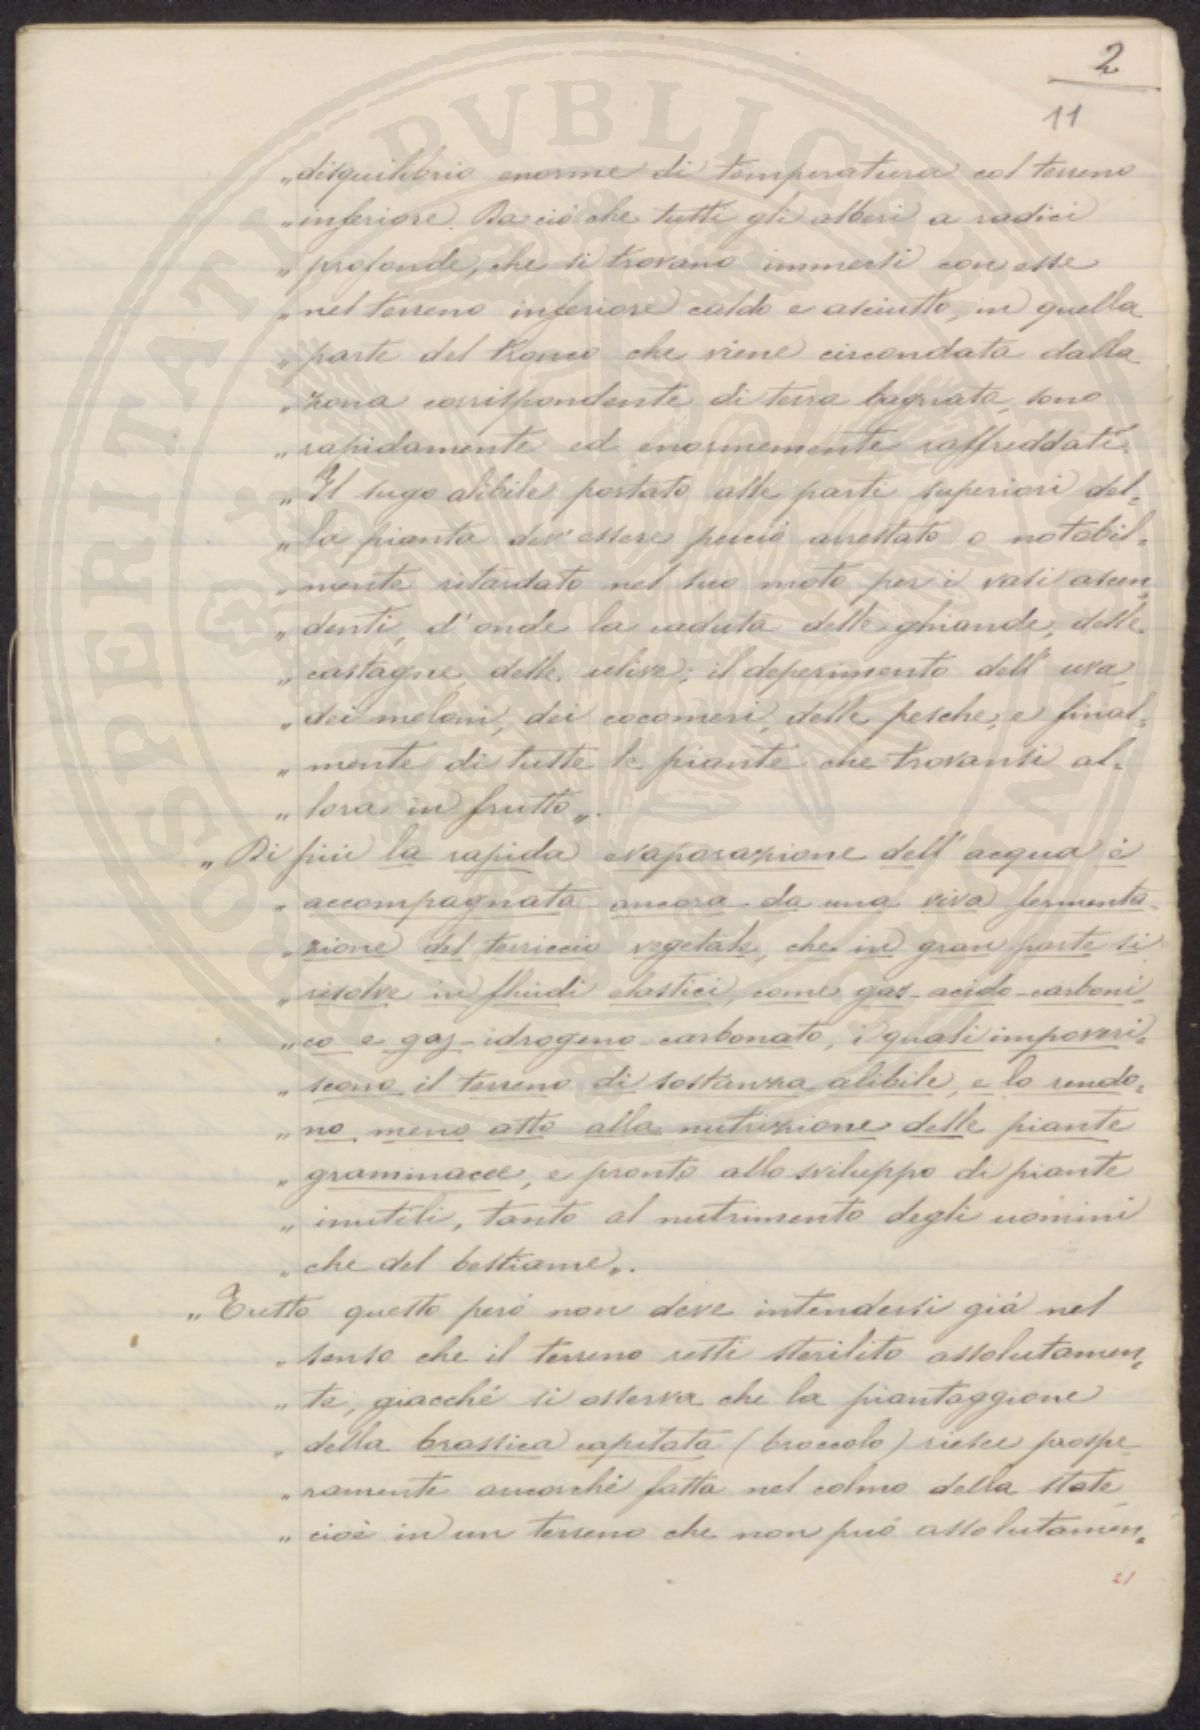 2
11
„disquilibrio enorme di temperatura col terreno
„inferiore. Da ciò che tutti gli alberi a radici
„profonde, che si trovano immersi con esse
„nel terreno inferiore caldo e asciutto, in quella
„parte del tronco che viene circondata dalla
„zona corrispondente di terra bagnata, sono
„rapidamente ed enormemente raffreddati.
„Il sugo alibile portato alle parti superiori del„
„la pianta dev'essere perciò arrestato o notabil„
„mente ritardato nel suo moto per i vasi ascen„
„denti, d'onde la caduta delle ghiande, delle
„castagne, delle ulive; il deperimento dell'uva
„dei meloni, dei cocomeri, delle pesche, e final„
„mente di tutte le piante che trovansi al„
„lora in frutto„.
„Di più la rapida evaporazione dell'acqua è
„accompagnata ancora da una viva fermenta„
„zione del terriccio vegetale, che in gran parte si
„risolve in fluidi elastici, come gas-acido-carboni„
„co e gaz-idrogeno-carbonato, i quali impoveri„
„scono il terreno di sostanza alibile, e lo rendo„
„no meno atto alla nutrizione delle piante
„graminacee, e pronto allo sviluppo di piante
„inutili, tanto al nutrimento degli uomini
„che del bestiame„.
„Tutto questo però non deve intendersi già nel
„senso che il terreno resti sterilito assolutamen„
„te, giacché si osserva che la piantaggione
„della brassica capitata (broccolo) riesce prospe„
„ramente ancorché fatta nel colmo della state
„cioè in un terreno che non può assolutamen„
21
PROSPERITATI PVBLICAE